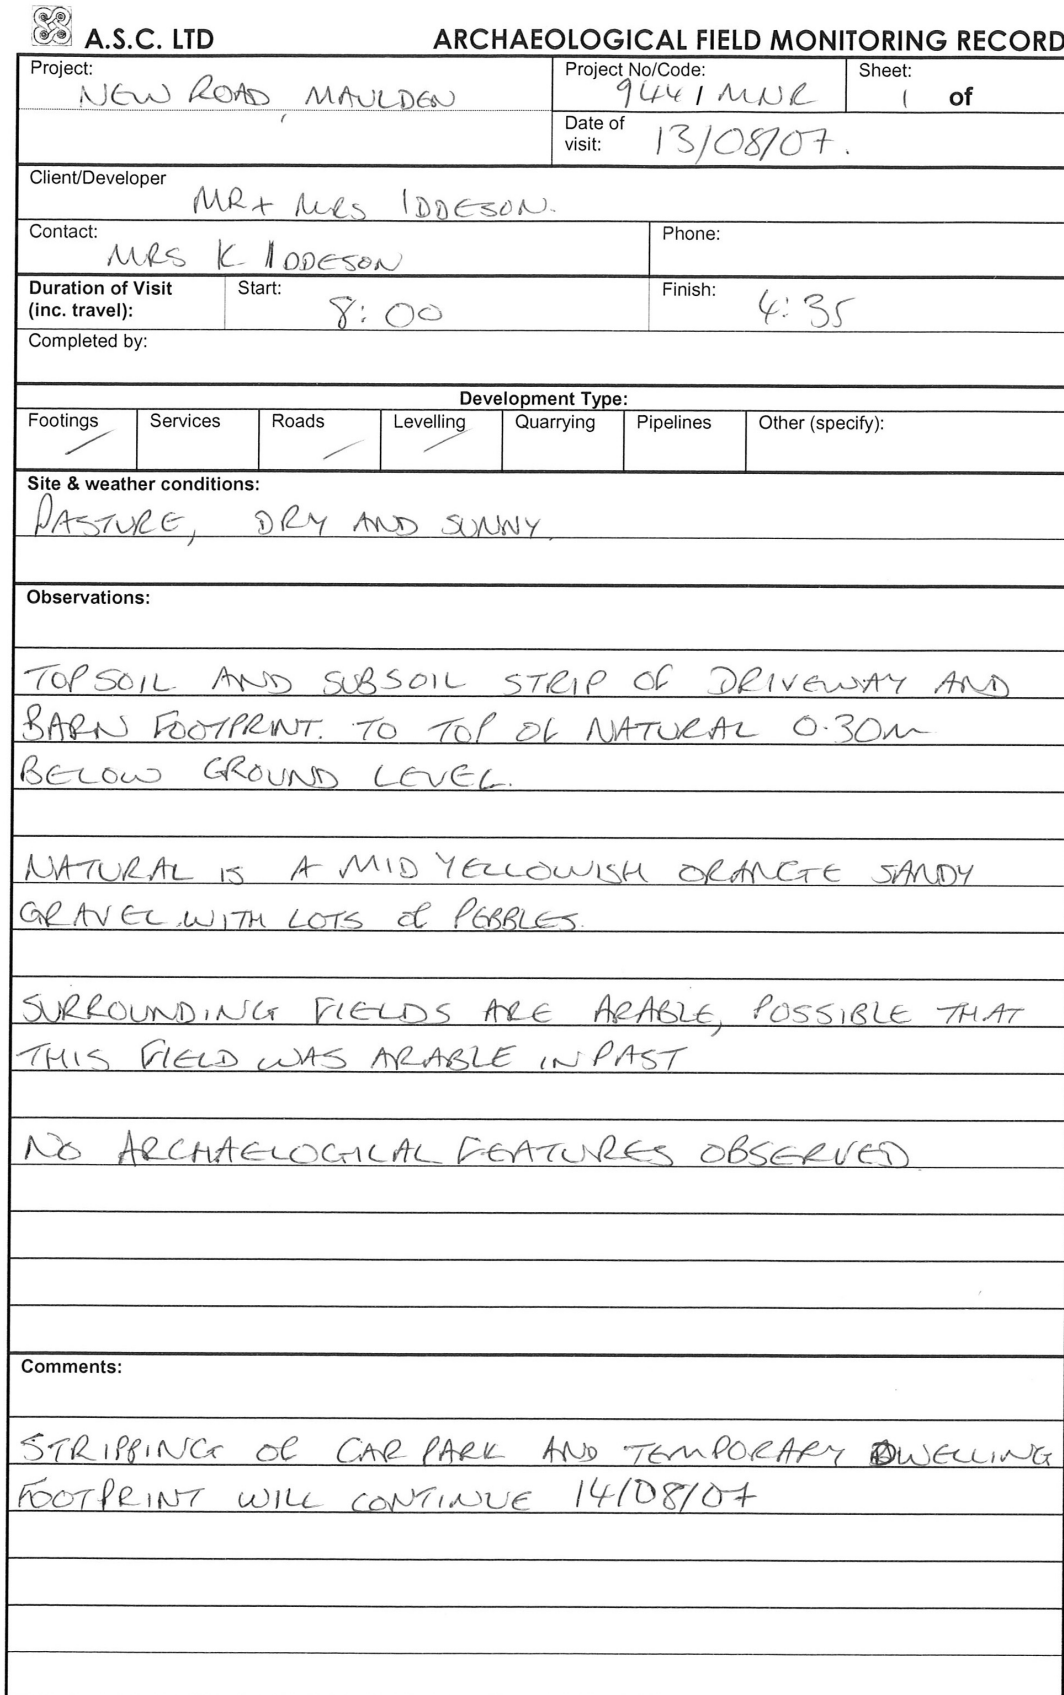 A.S.C. LTD ARCHAEOLOGICAL FIELD MONITORING RECORD
Project: NEW ROAD, MAULDEN
Project No/Code: 944/MNR
Sheet: 1 of
Date of visit: 13/08/07.
Client/Developer MR + MRS IDDESON.
Contact: MRS K IDDESON
Phone:
Duration of Visit (inc. travel):
Start: 8:00
Finish: 4:35
Completed by:
Development Type:
Footings / Services Roads / Levelling / Quarrying Pipelines Other (specify):
Site & weather conditions:
PASTURE, DRY AND SUNNY.
Observations:
TOPSOIL AND SUBSOIL STRIP OF DRIVEWAY AND
BARN FOOTPRINT. TO TOP OF NATURAL 0.30m
BELOW GROUND LEVEL.
NATURAL IS A MID YELLOWISH ORANGE SANDY
GRAVEL WITH LOTS OF PEBBLES.
SURROUNDING FIELDS ARE ARABLE, POSSIBLE THAT
THIS FIELD WAS ARABLE IN PAST
NO ARCHAELOGICAL FEATURES OBSERVED
Comments:
STRIPPING OF CAR PARK AND TEMPORARY DWELLING
FOOTPRINT WILL CONTINUE 14/08/07